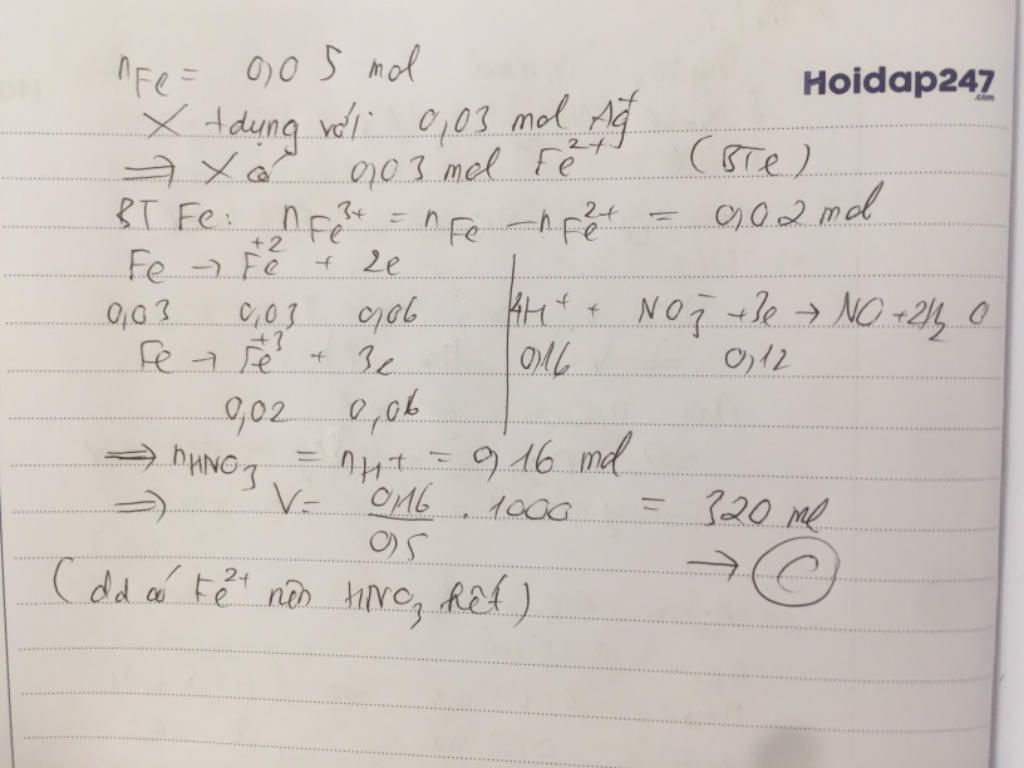 nFe = 0,05 mol
Hoidap247
.com
X + dụng với 0,03 mol Ag+
=> X có 0,03 mol Fe2+ (BTe)
BT Fe: nFe3+ = nFe - nFe2+ = 0,02 mol
Fe → Fe+2 + 2e
0,03 0,03 0,06
4H+ + NO3- + 3e → NO + 2H2O
Fe → Fe+3 + 3e
0,16 0,12
0,02 0,06
=> nHNO3 = nH+ = 0,16 mol
=> V = 0,16/0,5 . 1000 = 320 ml
→ C
(dd có Fe2+ nên HNO3 hết)